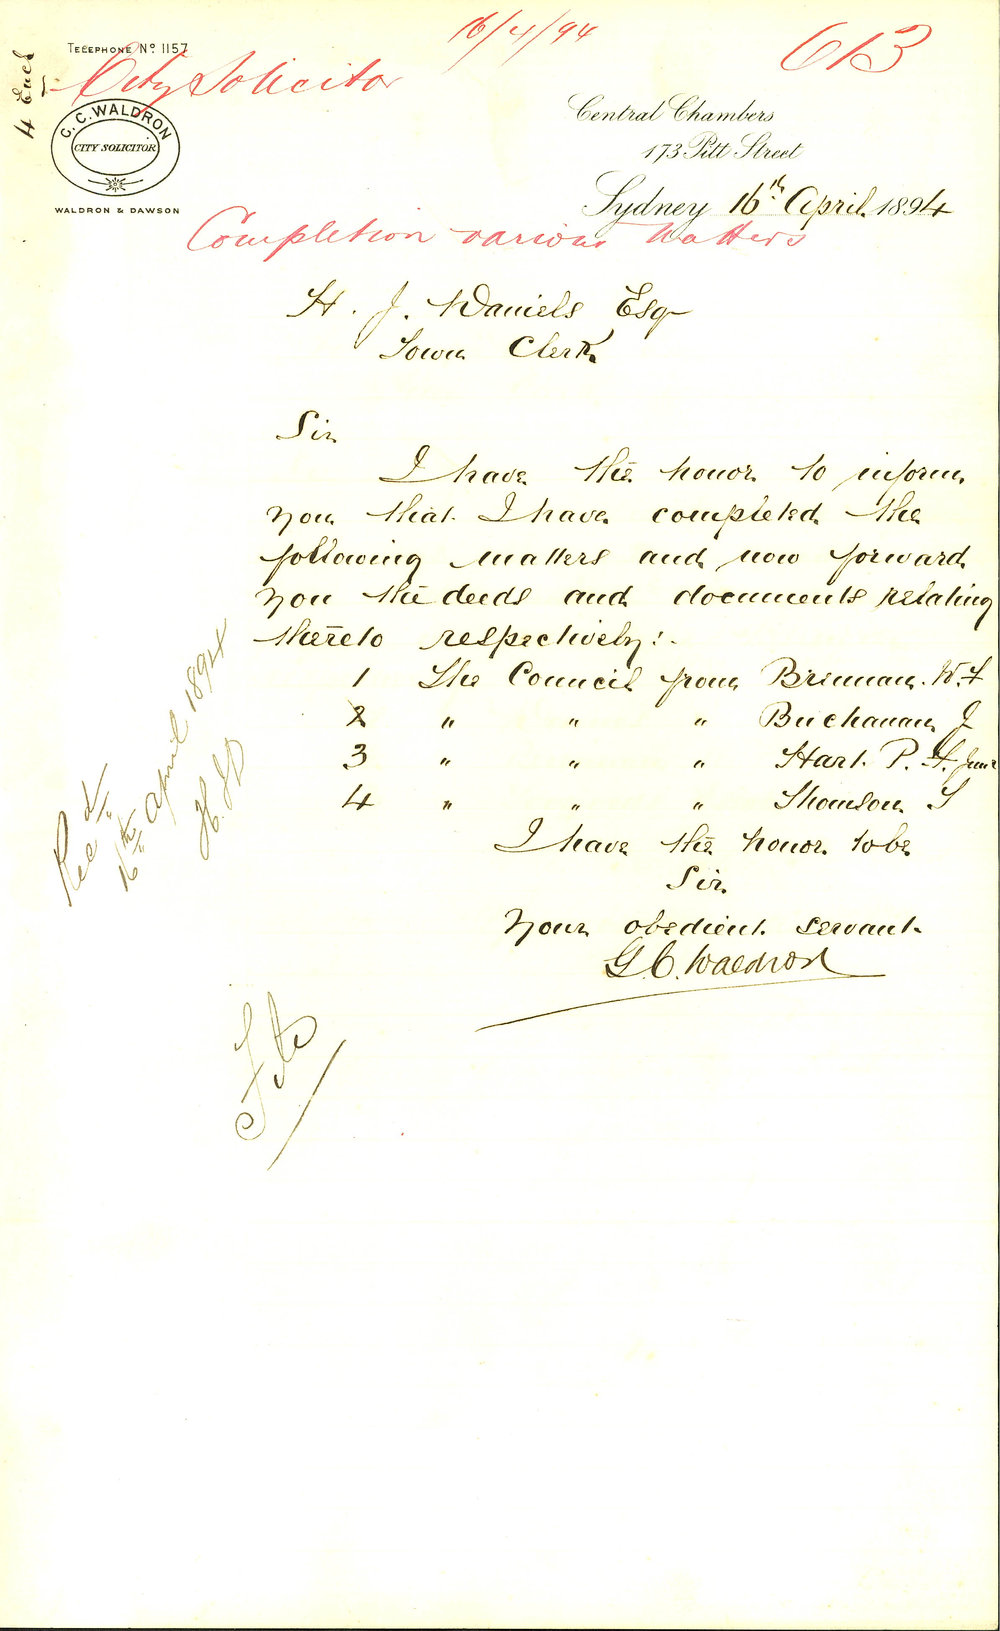 16/4/94
613
TELEPHONE No 1157
4 Encl
City Solicitor
G. C. WALDRON
CITY SOLICITOR
WALDRON & DAWSON
Central Chambers
173 Pitt Street
Sydney 16th April 1894
Completion various matters
H. J. Daniels Esq
Town Clerk
Sir
I have the honor to inform
you that I have completed the
following matters and now forward
you the deeds and documents relating
thereto respectively:-
1 The Council from Brennan. W. F
2 " " " Buchanan J
3 " " " Hart P. H. Junr
4 " " " Thomson S
I have the honor to be
Sir
Your obedient servant
G. C. Waldron
Recd
16th April 1894
H. J. D